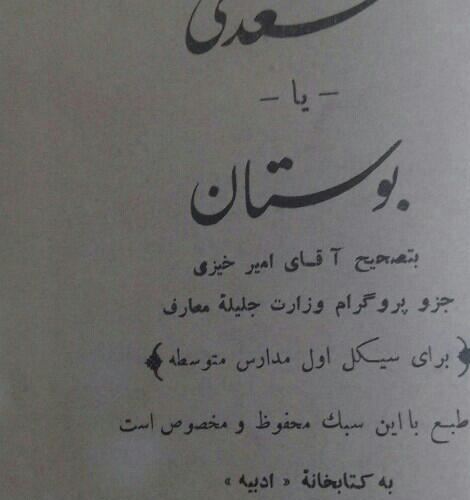 سعدی
– یا –
بوستان
بتصحیح آقای امیر خیزی
جزو پروگرام وزارت جلیلهٔ معارف
﴿ برای سیکل اول مدارس متوسطه ﴾
طبع با این سبك محفوظ و مخصوص است
به کتابخانهٔ « ادبیه »